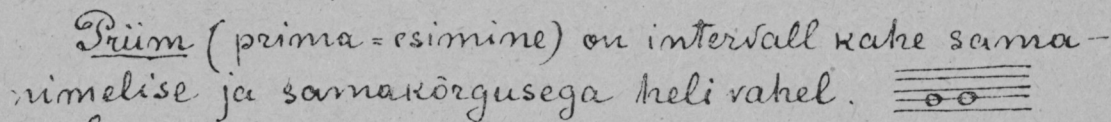 Priim (prima = esimine) on intervall kahe sama-
nimelise ja samakõrgusega heli vahel.